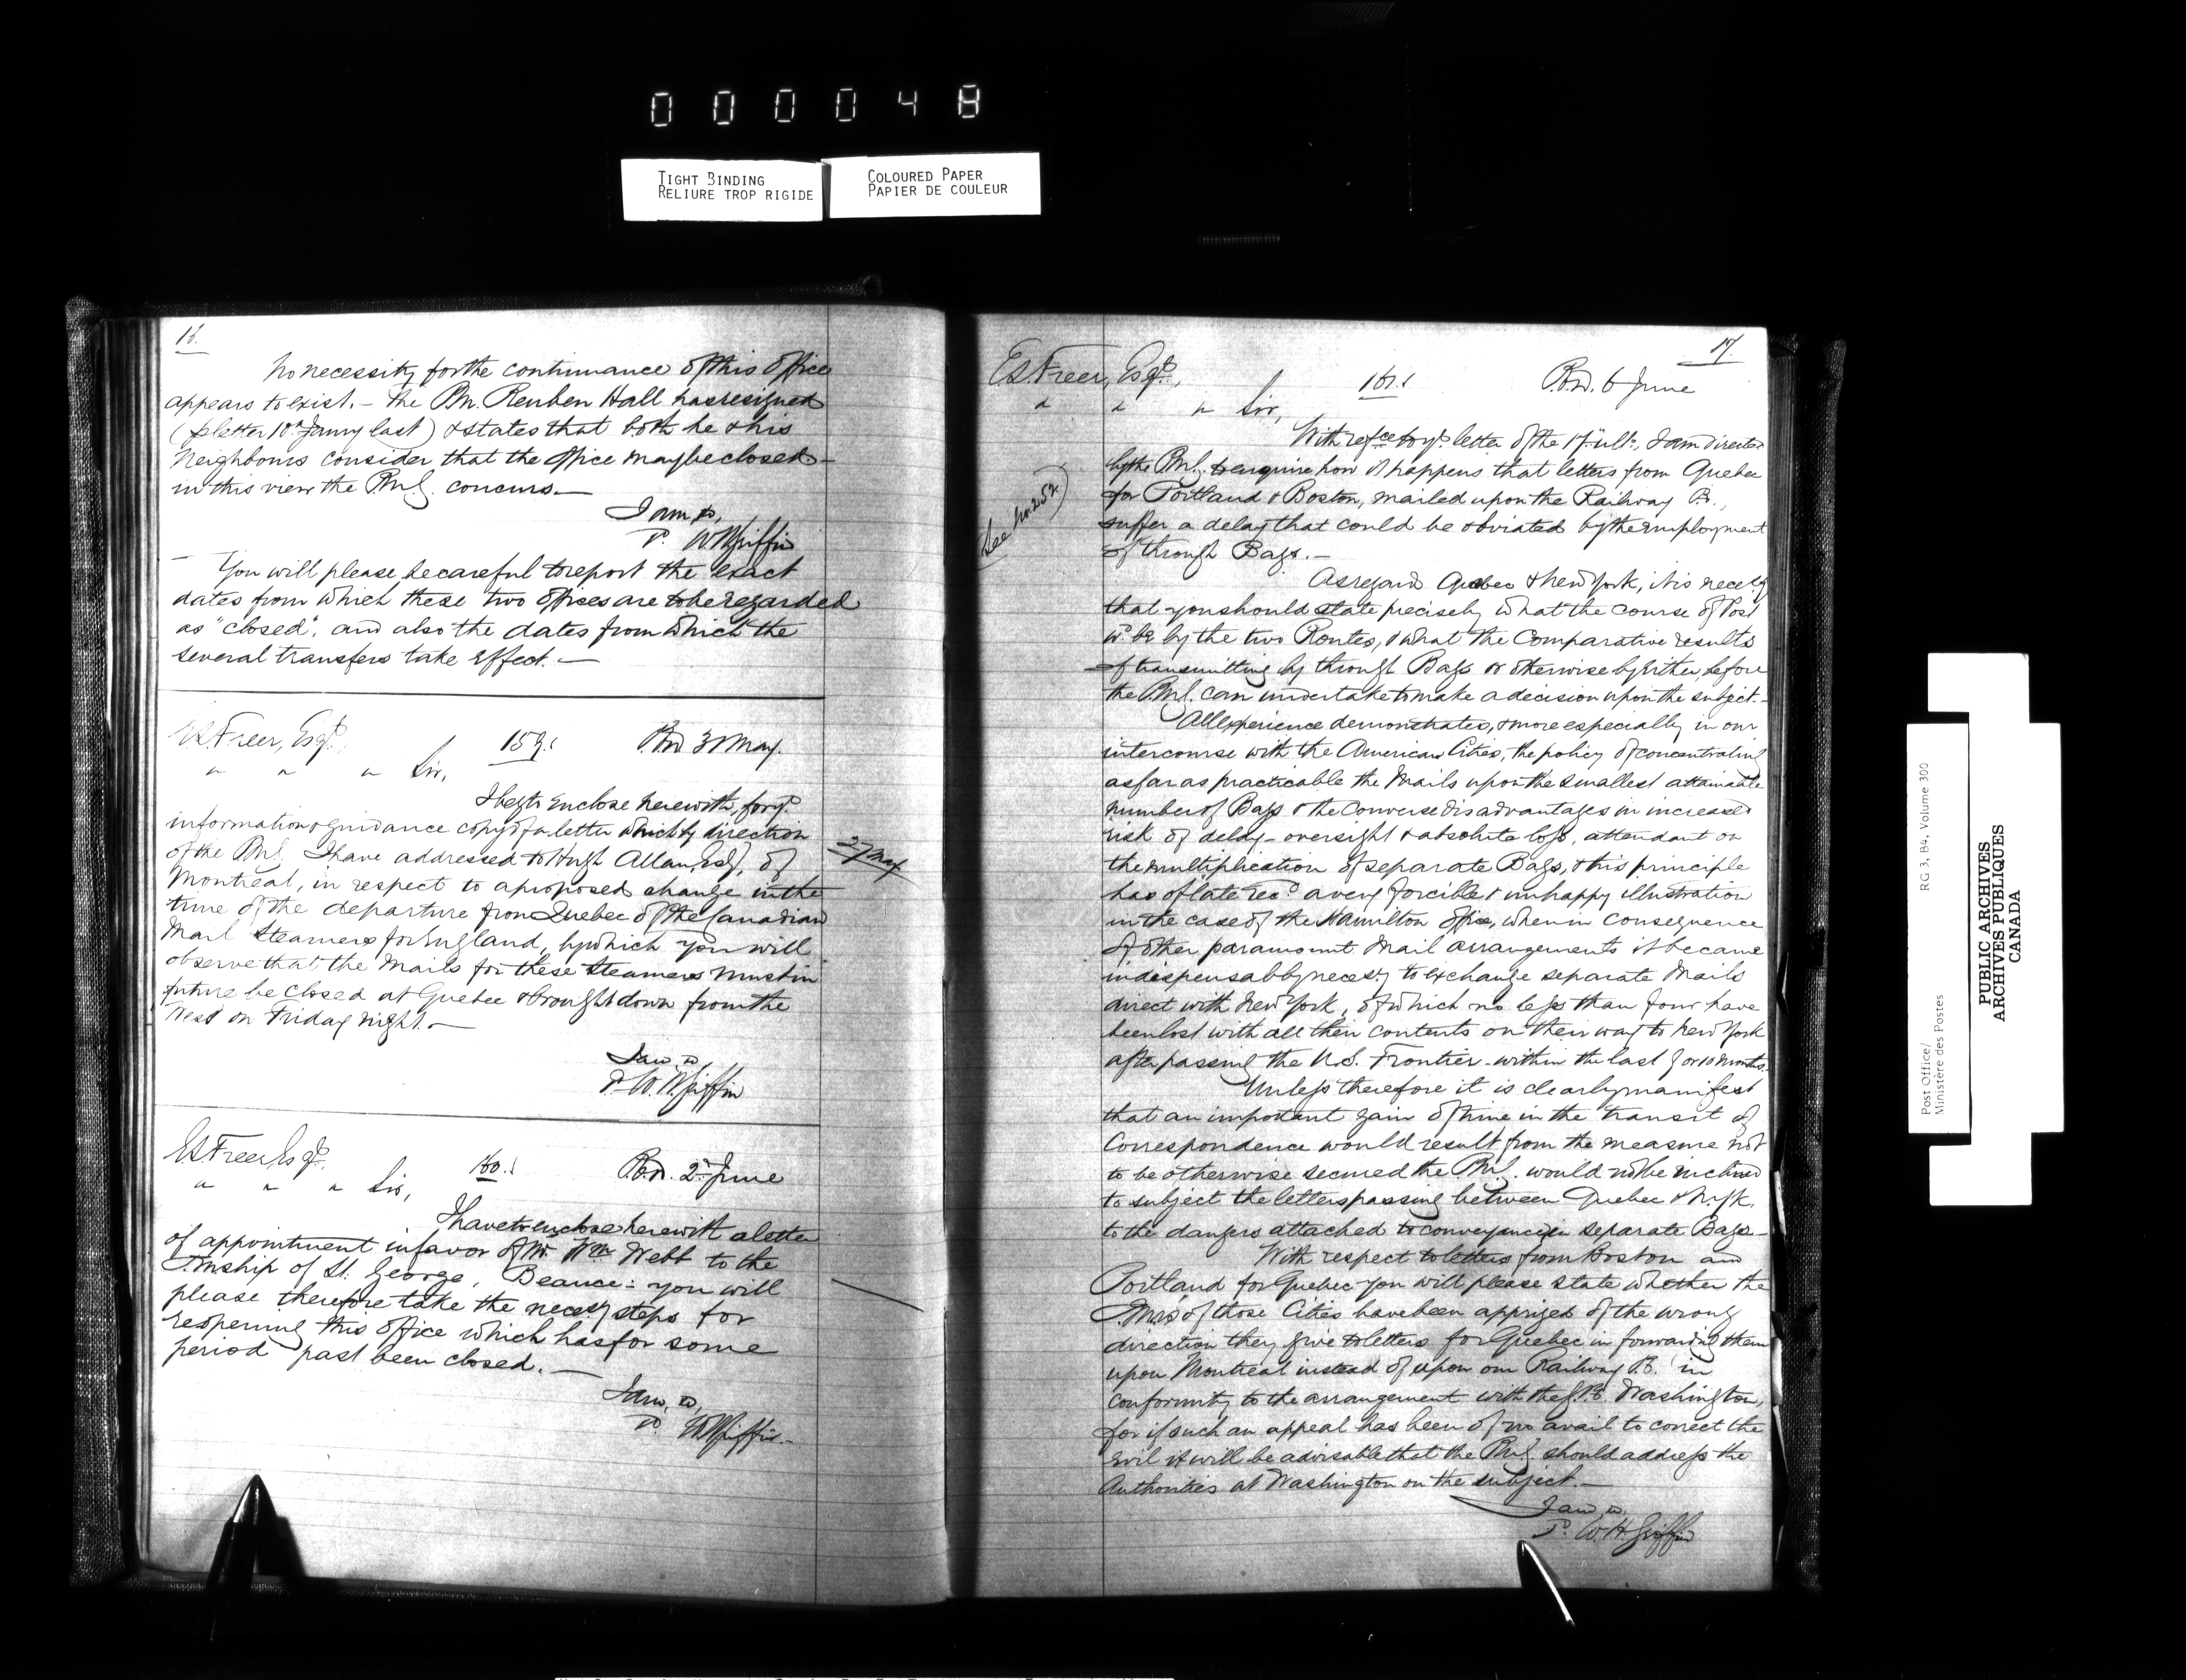 000048
TIGHT BINDING
RELIURE TROP RIGIDE
COLOURED PAPER
PAPIER DE COULEUR
16.
No necessity for the continuance of this Office
appears to exist. - The Pm. Reuben Hall has resigned
(p letter 10th Janry last) & states that both he & his
Neighbours consider that the Office may be closed -
in this view the P.M.G. concurs. -
I am &,
P. W H Griffin
You will please be careful to report the exact
dates from which these two offices are to be regarded
as "closed". and also the dates from which the
several transfers take effect. -
E.S. Freer, Esqr.
159.
P.O.D. 31 May.
" " " Sir,
I beg to enclose herewith, for yr.
information & guidance copy of a letter which by direction
of the P.M.G. I have addressed to Hugh Allan, Esq., of
27 May
Montreal, in respect to a proposed change in the
time of the departure from Quebec of the Canadian
Mail Steamers for England, by which you will
observe that the Mails for these Steamers must in
future be closed at Quebec & brought down from the
West on Friday night. -
I am &
P. W. H. Griffin
E.S. Freer Esqr.
160.
P.O.D. 2d June
" " " Sir,
I have to enclose herewith a letter
of appointment in favor of Mr. Wm Webb to the
Pmship of St. George, Beauce: you will
please therefore take the necesy steps for
reopening this office which has for some
period past been closed. -
I am, &,
P. W H Griffin -
17.
E.S. Freer, Esqr.,
161.
P.O.D. 6 June
" " " Sir,
With refce to yr letter of the 17th ulto, I am directed
by the P.M.G. to enquire how it happens that letters from Quebec
for Portland & Boston, mailed upon the Railway P.O.,
See No. 252)
suffer a delay that could be obviated by the employment
of through Bags. -
As regards Quebec & New York, it is necesy
that you should state precisely what the course of Post
wd. be by the two Routes, & what the Comparative results
of transmitting by through Bags or otherwise by Either, before
the P.M.G. can undertake to make a decision upon the subject. -
All experience demonstrates, & more especially in our
intercourse with the American Cities, the policy of concentrating
as far as practicable the Mails upon the smallest attainable
number of Bags & the Converse disadvantages in increased
risk of delay - oversight & absolute loss, attendant on
the multiplication of separate Bags, & this principle
has of late recd a very forcible & unhappy illustration
in the case of the Hamilton office, when in consequence
of other paramount Mail arrangements it became
indispensably necesy to exchange separate Mails
direct with New York, of which no less than four have
been lost with all their contents on their way to New York
after passing the U.S. Frontier - within the last 9 or 10 months.
Unless therefore it is clearly manifest
that an important gain of time in the transit of
Correspondence would result from the measure not
to be otherwise secured the P.M.G. would not be inclined
to subject the letters passing between Quebec & N. Yk.
to the dangers attached to conveyance in separate Bags -
With respect to letters from Boston and
Portland for Quebec you will please state whether the
Pmrs of those Cities have been apprized of the wrong
direction they give to letters for Quebec in forwarding them
upon Montreal instead of upon our Railway P.O. in
conformity to the arrangement with the G.P.O. Washington,
for if such an appeal has been of no avail to correct the
evil it will be advisable that the P.M.G. should address the
Authorities at Washington on the subject. -
I am &,
P. W. H. Griffin
Post Office/
Ministère des Postes
RG 3, B4, Volume 300
PUBLIC ARCHIVES
ARCHIVES PUBLIQUES
CANADA